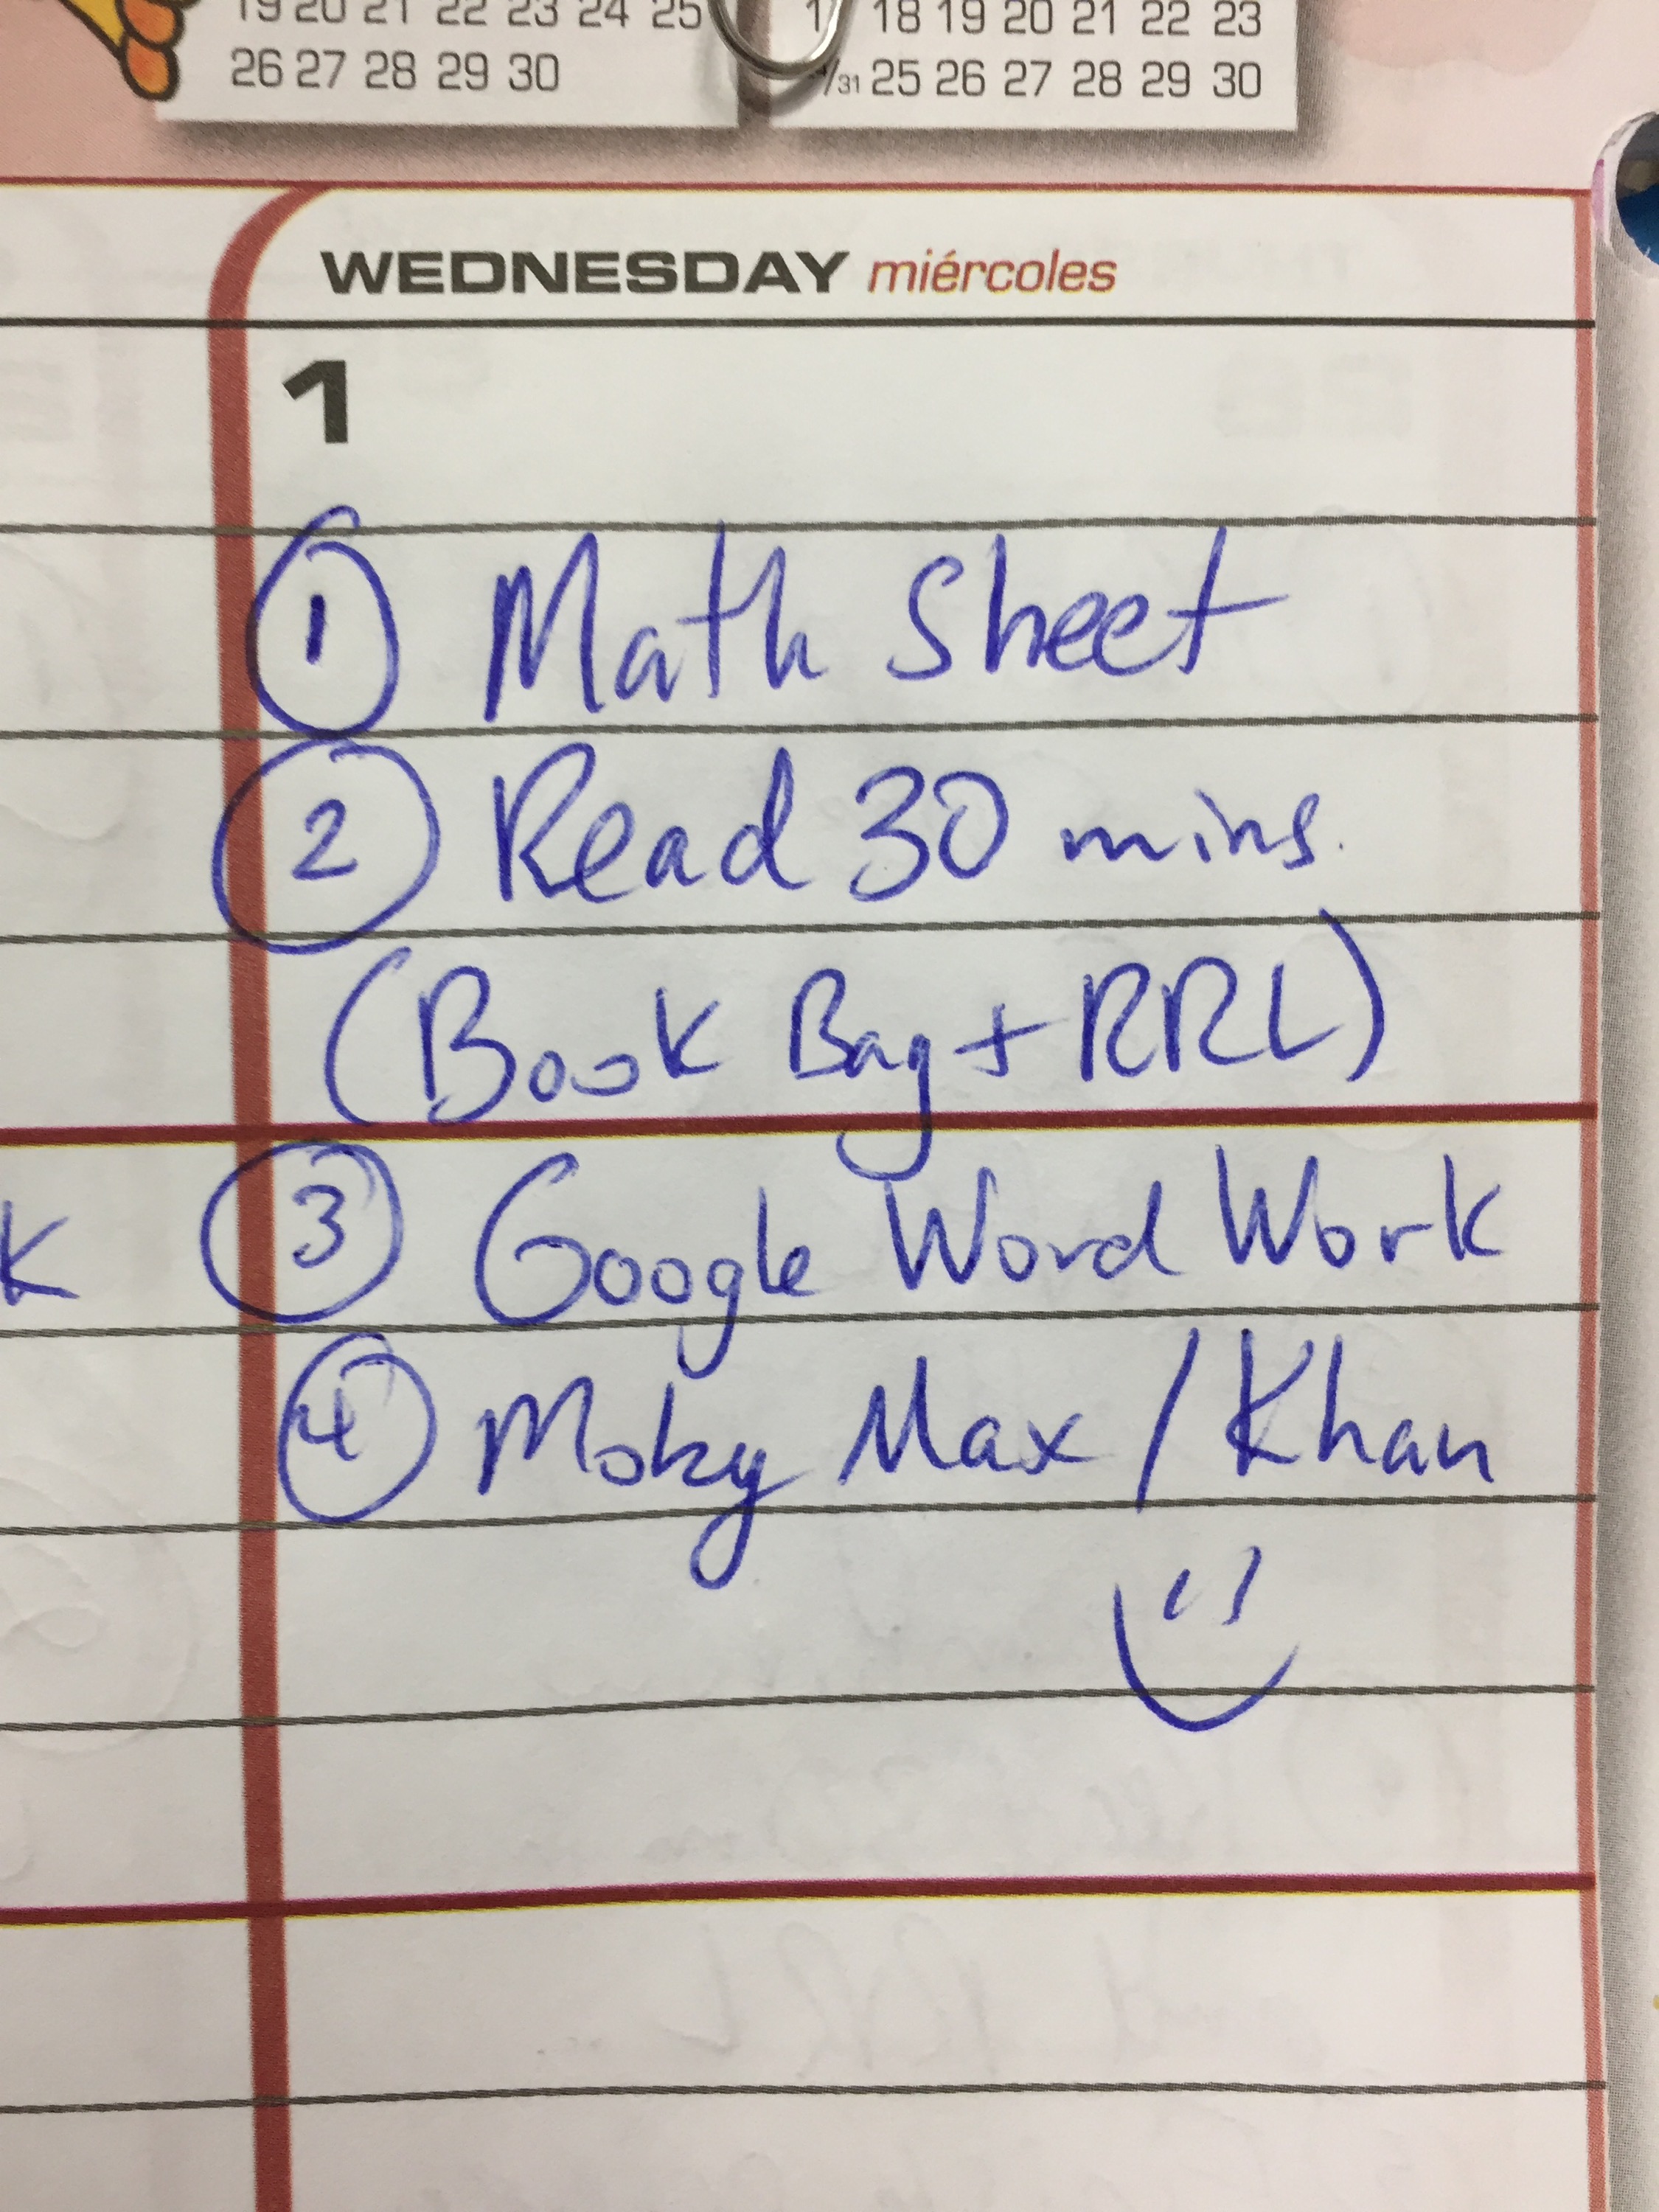 19 20 21 22 23 24 25
26 27 28 29 30
17 18 19 20 21 22 23
/31 25 26 27 28 29 30
WEDNESDAY miércoles
1
1 Math Sheet
2 Read 30 mins.
(Book Bag + RRL)
K
3 Google Word Work
4 Moby Max / Khan